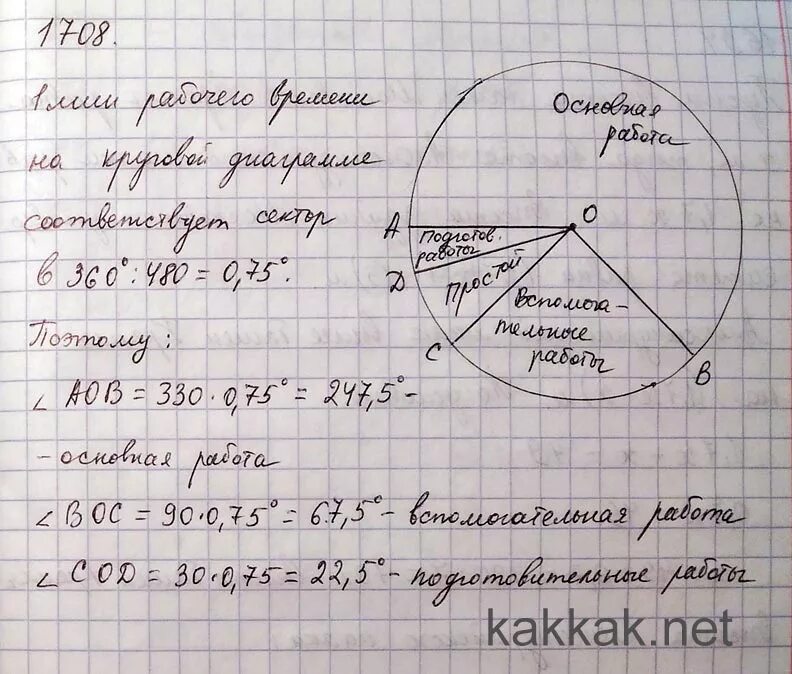 1708.
1 мин рабочего времени
на круговой диаграмме
соответствует сектор
в 360° : 480 = 0,75°.
Поэтому:
∠ AOB = 330 · 0,75° = 247,5° -
- основная работа
∠ BOC = 90 · 0,75° = 67,5° - вспомогательная работа
∠ COD = 30 · 0,75 = 22,5° - подготовительные работы
Основная
работа
A
O
Подготов.
работы
D
Простой
Вспомога-
тельные
работы
C
B
kakkak.net